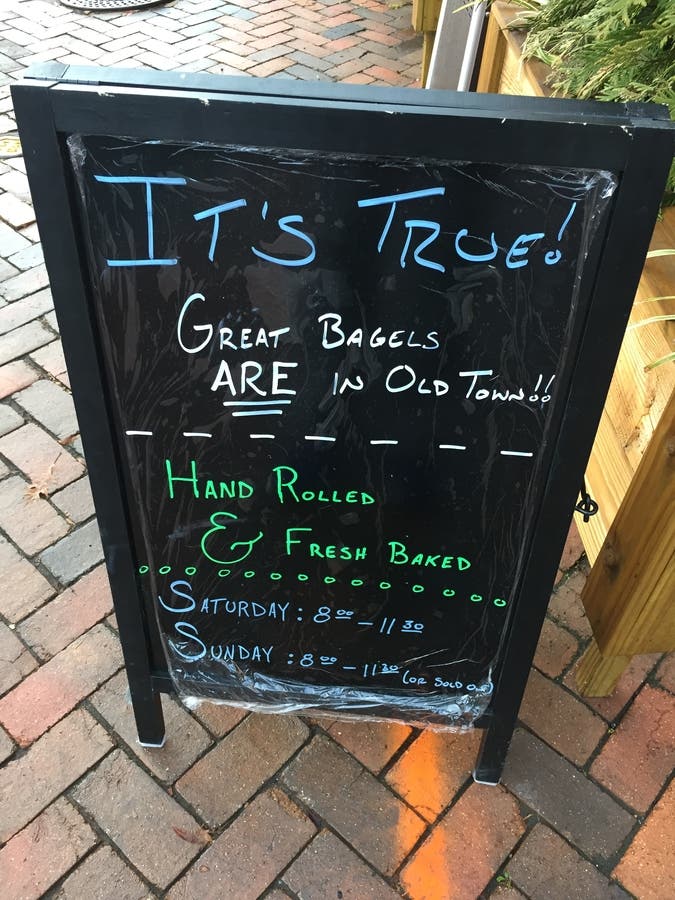 IT'S TRUE!
GREAT BAGELS
ARE IN OLD TOWN!!
HAND ROLLED
& FRESH BAKED
SATURDAY: 8 00 - 11 30
SUNDAY: 8 00 - 11 30 (OR SOLD OUT)